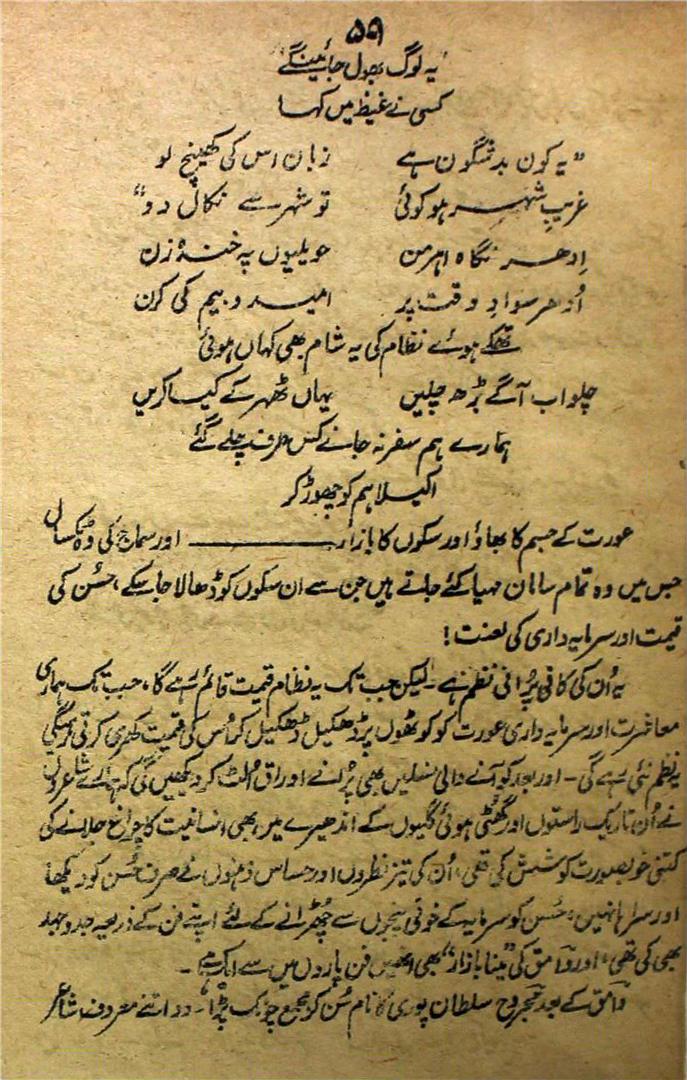 ۵۹
یہ لوگ بھول جائینگے
کسی نے غیظ میں کہا
"یہ کون بدشگون ہے زبان اس کی کھینچ لو
غریبِ شہر ہو کوئی تو شہر سے نکال دو"
اِدھر نگاہ اہرمن حویلیوں پہ خندۂ زن
اُدھر سوادِ وقت پر امید و بیم کی کرن
تھکے ہوئے نظام کی یہ شام بھی کہاں ہوئی
چلو اب آگے بڑھ چلیں یہاں ٹھہر کے کیا کریں
ہمارے ہم سفر نہ جانے کس طرف چلے گئے
اکیلا ہم کو چھوڑ کر
عورت کے جسم کا بھاؤ اور سکوں کا بازار ــــــــ اور سماج کی وہ ٹکسال
جس میں وہ تمام سامان مہیا کئے جاتے ہیں جن سے ان سکوں کو ڈھالا جا سکے، حُسن کی
قیمت اور سرمایہ داری کی لعنت!
یہ اُن کی کافی پُرانی نظم ہے۔ لیکن جب تک یہ نظام قیمت قائم رہے گا، جب تک ہماری
معاشرت اور سرمایہ داری عورت کو کوٹھوں پر ڈھکیل ڈھکیل کر اُس کی قیمت کھری کرتی رہیگی
یہ نظم نئی رہے گی۔ اور بعد کو آنے والی نسلیں بھی پُرانے اوراق اُلٹ کر دیکھیں گی کہ ہمارے شاعروں
نے اُن تاریک راستوں اور گھُٹی ہوئی گلیوں کے اندھیرے میں بھی انسانیت کا چراغ جلانے کی
کتنی خوبصورت کوشش کی تھی، اُن کی تیز نظروں اور حساس ذہنوں نے صرف حُسن کو دیکھا
اور سراہا نہیں، حُسن کو سرمایہ کے خونی پنجوں سے چھڑانے کے لئے اپنے فن کے ذریعہ جدوجہد
بھی کی تھی، اور وامق کی "مینا بازار" بھی انھیں فن پاروں میں سے ایک ہے۔
وامق کے بعد مجروح سلطان پوری کا نام سُن کر مجمع چونک پڑا۔ وہ اتنے معروف شاعر